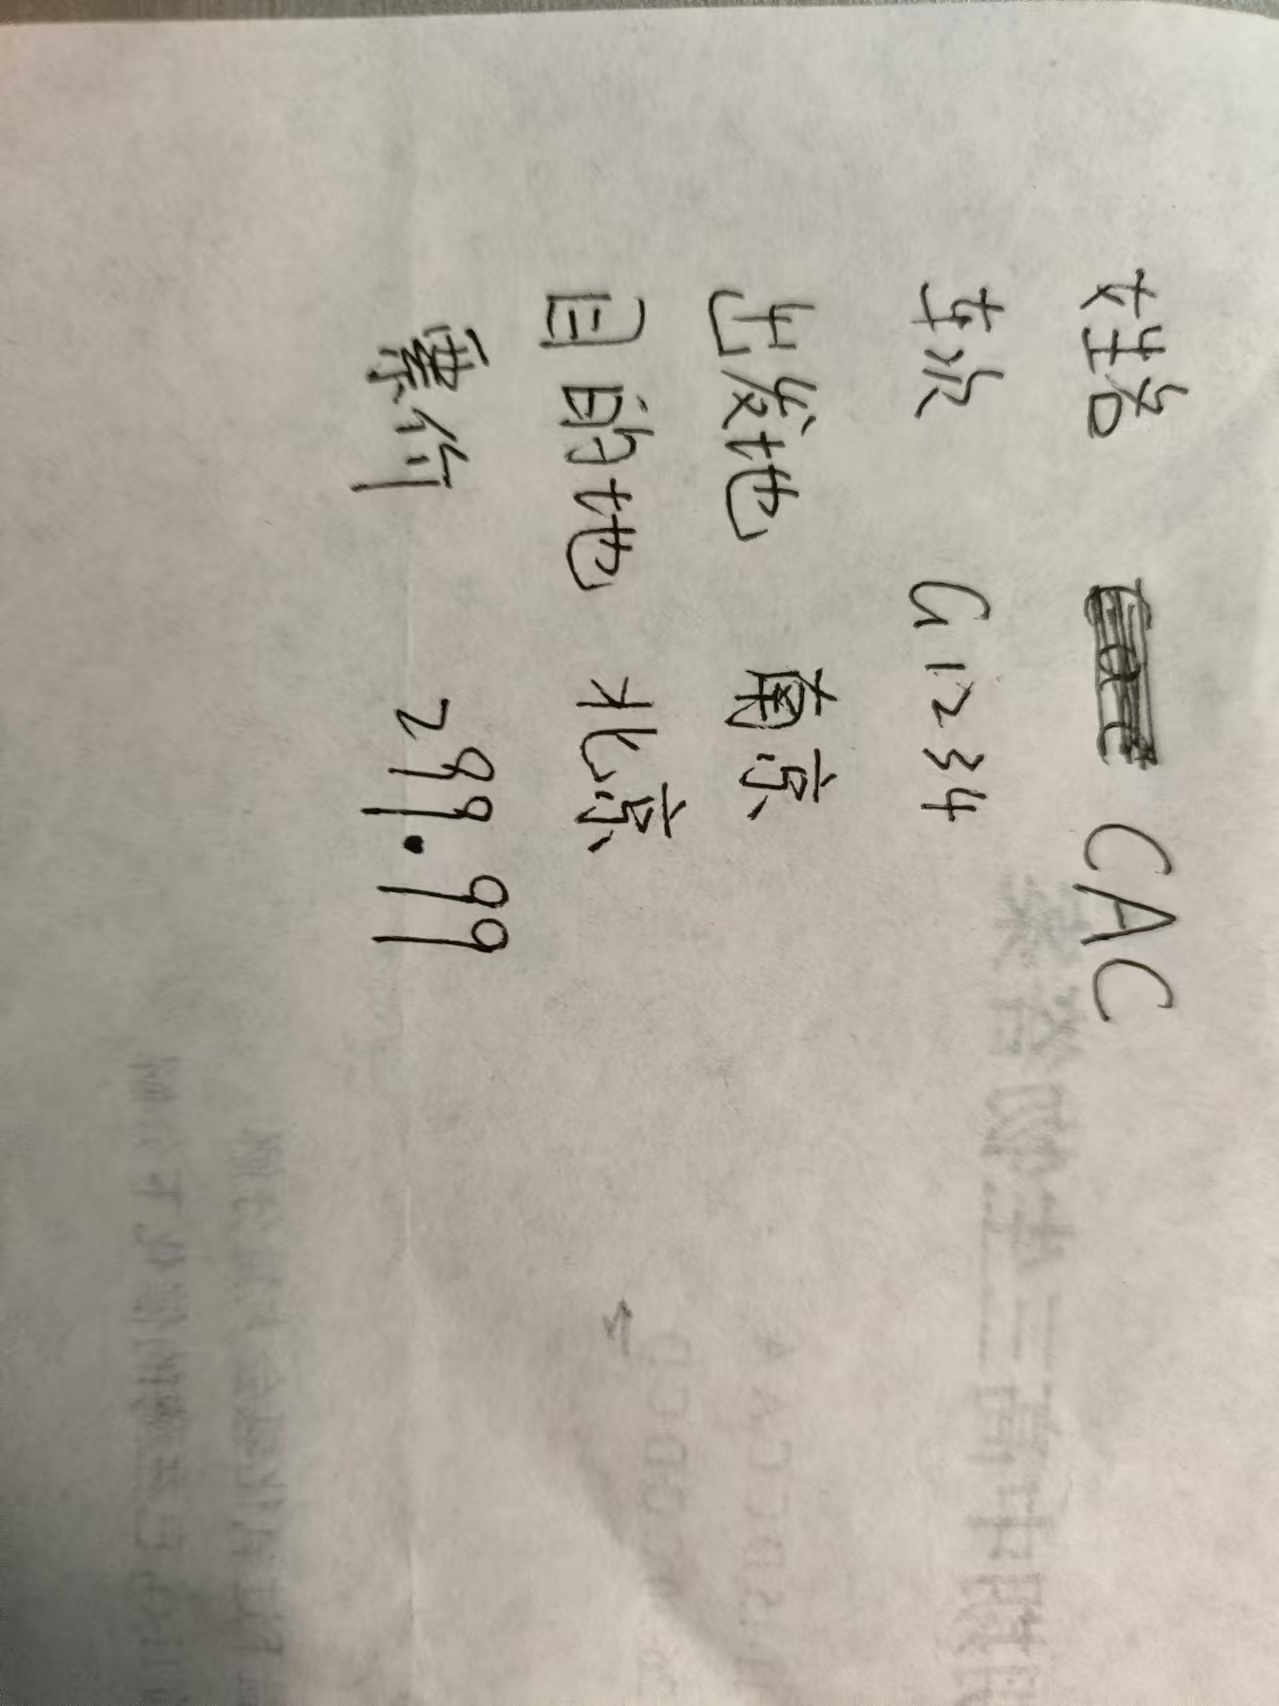 姓名 CAC
车次 G1234
出发地 南京
目的地 北京
票价 299.99